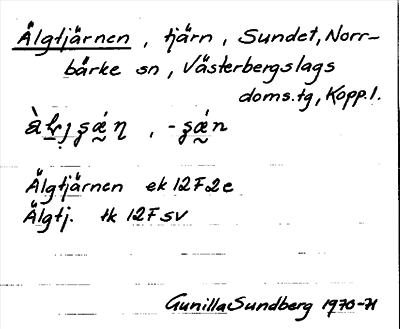 Älgtjärnen , tjärn , Sundet, Norr-
bärke sn , Västerbergslags
doms.tg, Kopp.l.
Älgtjärnen ek 12F2e
Älgtj. tk 12F SV
Gunilla Sundberg 1970-71